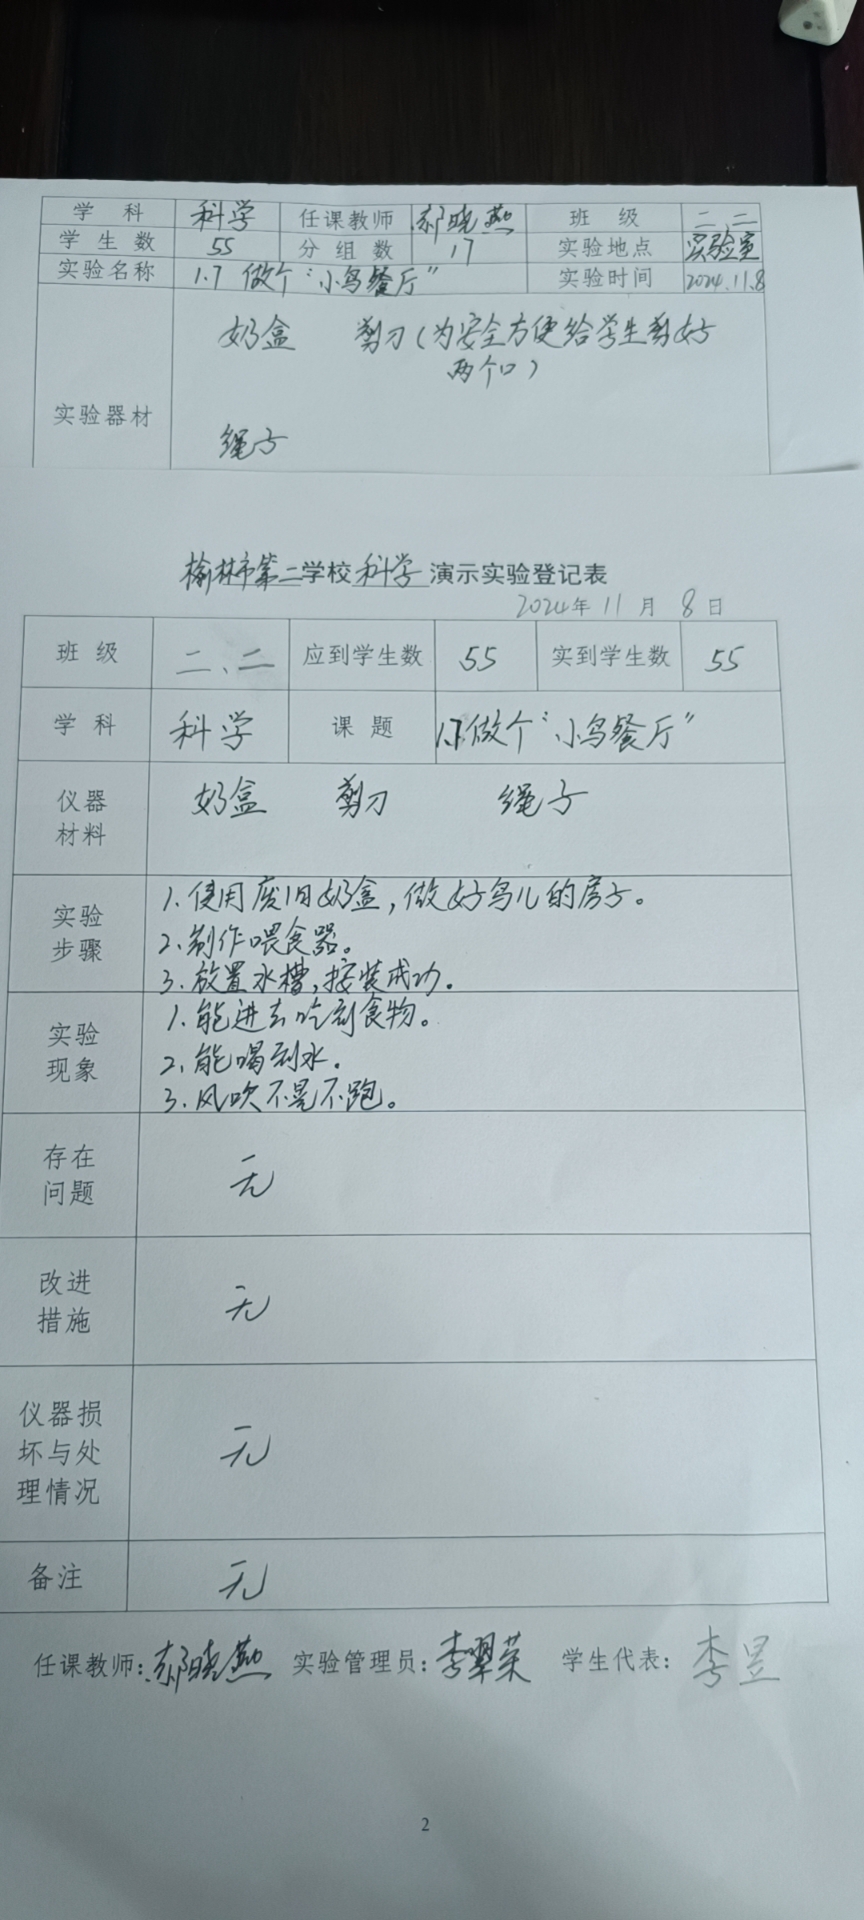 学科 科学 任课教师 郝晓燕 班级 二、二
学生数 55 分组数 17 实验地点 实验室
实验名称 1.7 做个“小鸟餐厅” 实验时间 2024.11.8
奶盒 剪刀(为安全方便给学生剪好
两个口)
实验器材
绳子
榆林市第二学校科学演示实验登记表
2024年11月8日
班级 二、二 应到学生数 55 实到学生数 55
学科 科学 课题 1.7做个“小鸟餐厅”
仪器 奶盒 剪刀 绳子
材料
1.使用废旧奶盒,做好鸟儿的房子。
实验
2.制作喂食器。
步骤
3.放置水槽,按装成功。
1.能进去吃到食物。
实验
2.能喝到水.
现象
3.风吹不晃不跑。
存在
问题 无
改进
措施 无
仪器损
坏与处 无
理情况
备注 无
任课教师:郝晓燕 实验管理员:李翠荣 学生代表:李昱
2